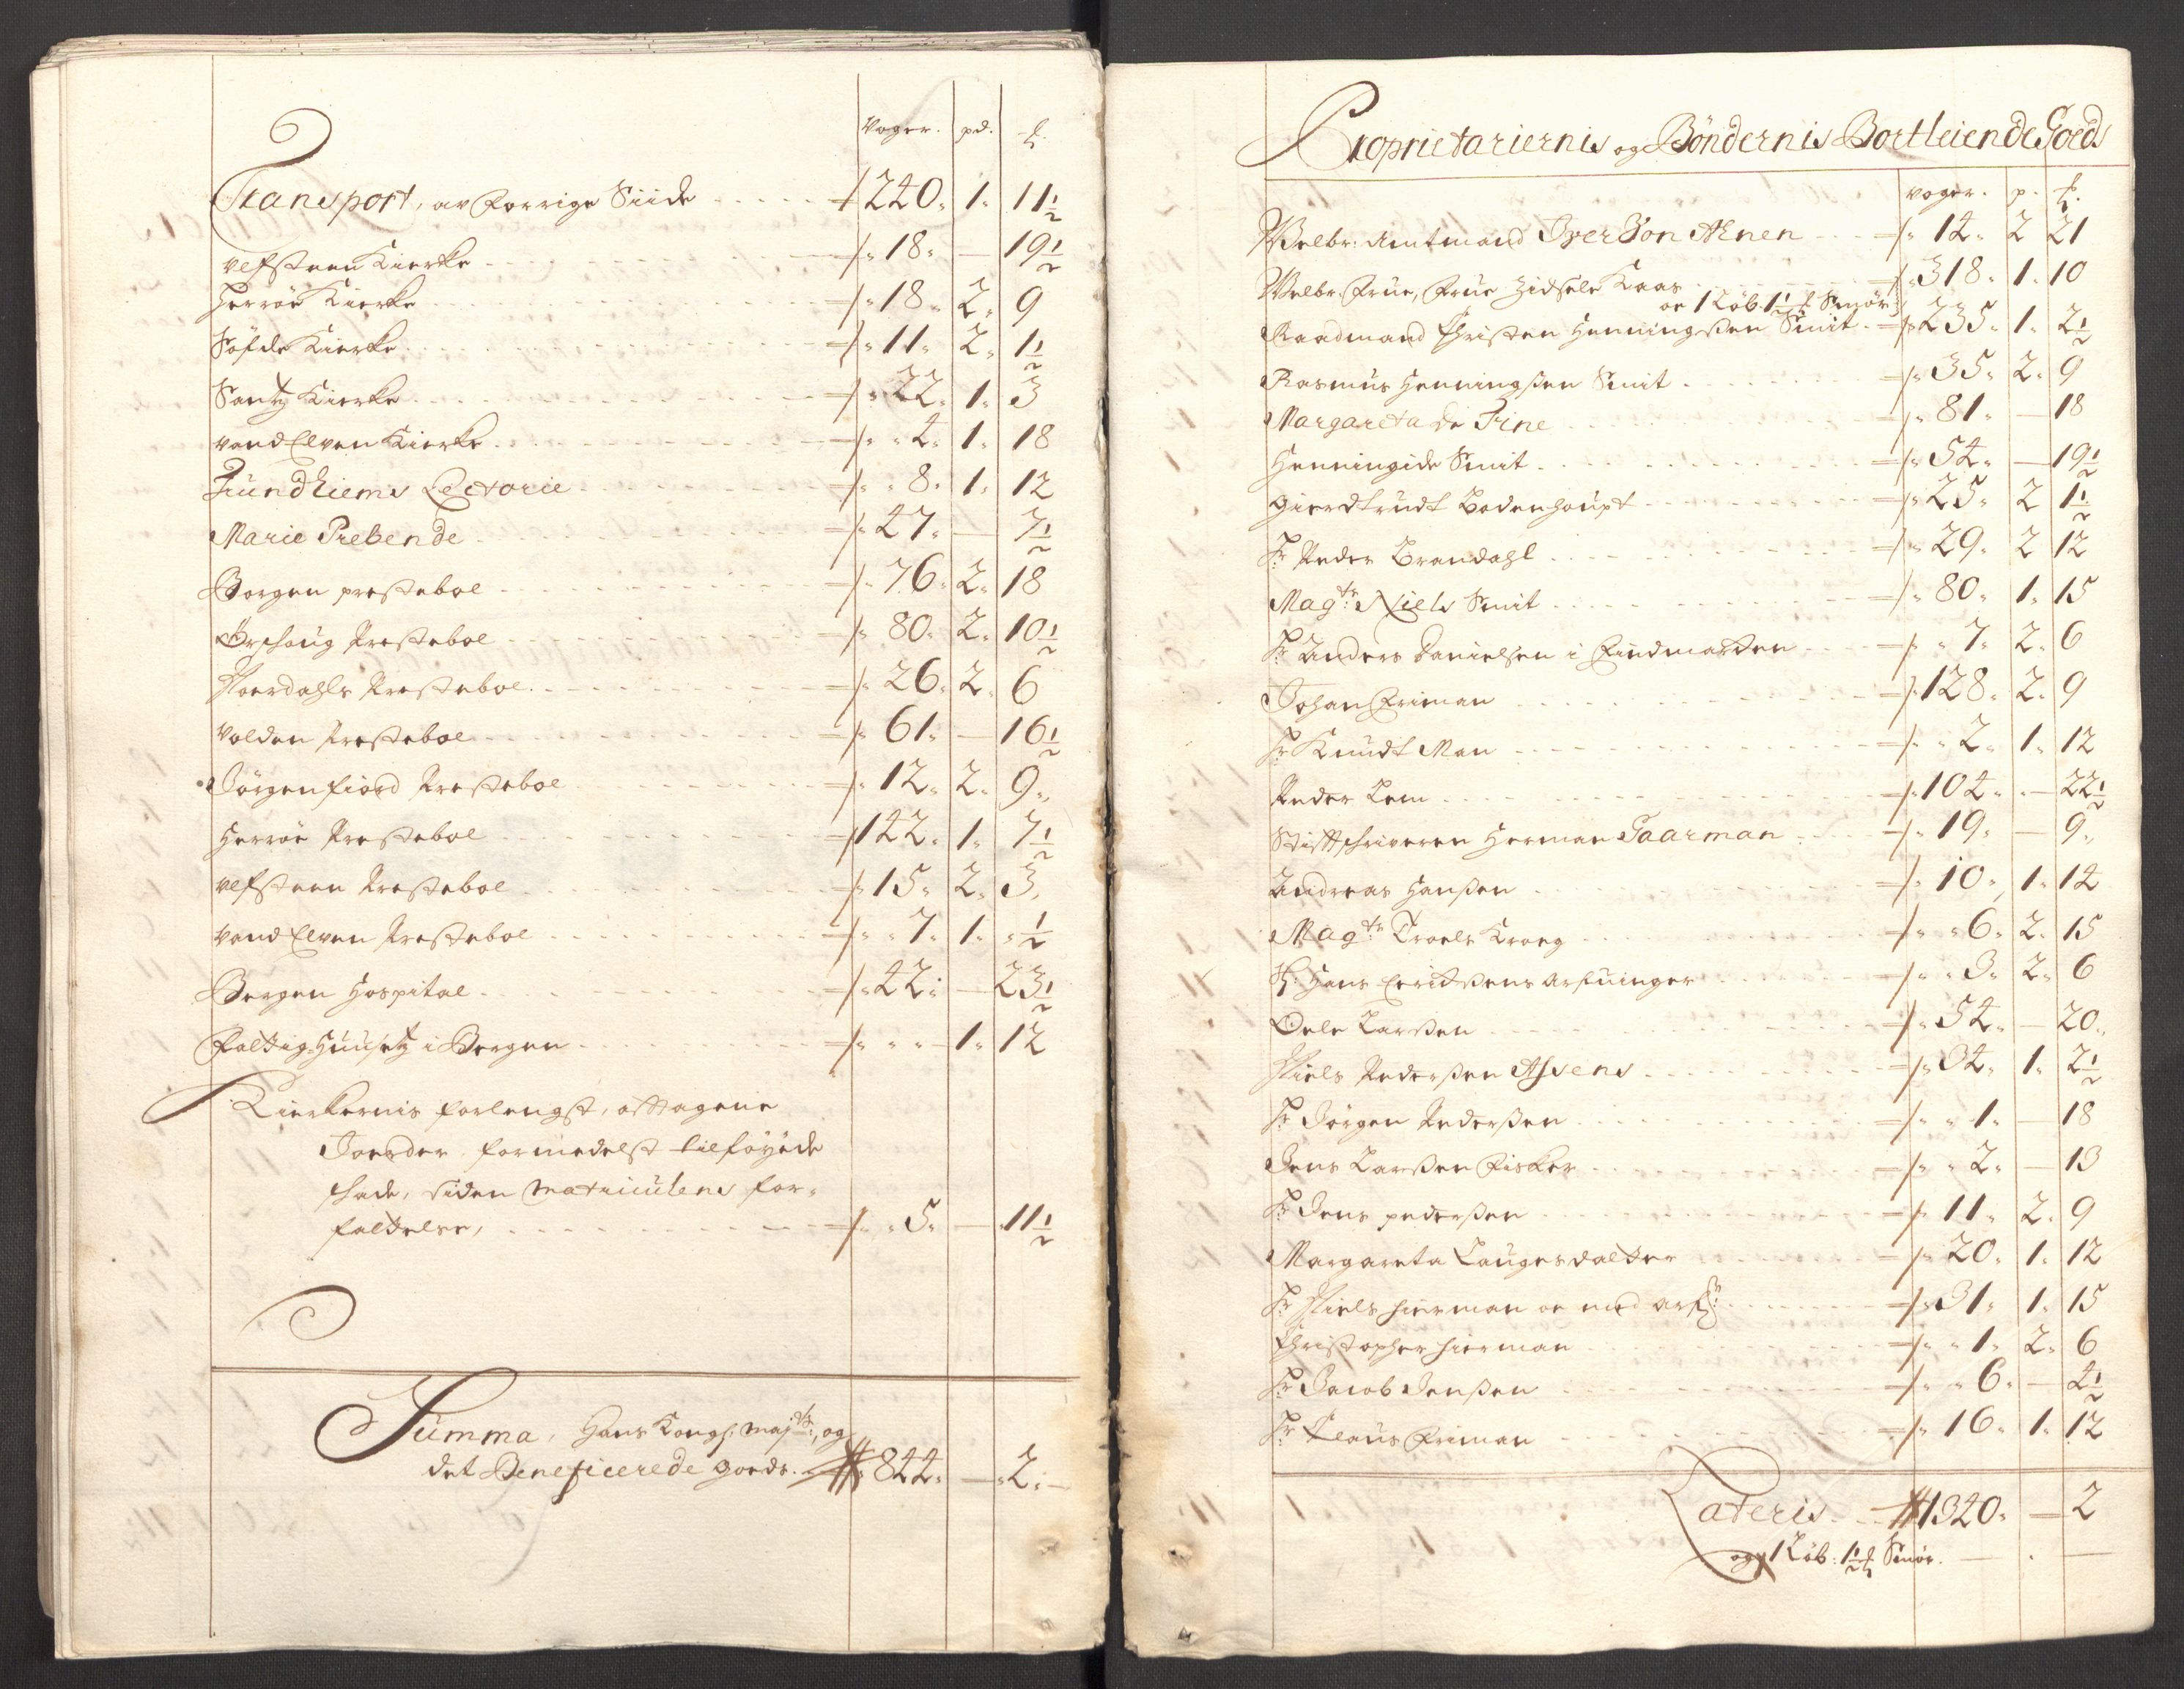 Voger. pd. ℔
Transport, av Forrige Siide 240. 1. 11½
Ulfsteen Kierke 18. — 19½
Herröe Kierke 18. 2. 9
Söfde Kierke 11. 2. 1½
Santz Kierke 22. 1. 3
Vandelven Kierke 4. 1. 18
Trundhiems Lectorie 8. 1. 12
Marie Prebende 47. — 7½
Borgen præstebol 76. 2. 18
Örschoug Præstebol 80. 2. 10½
Noerdahls Præstebol 26. 2. 6
Volden Præstebol 61. — 16½
Jörgenfiord Præstebol 12. 2. 9
Herröe Præstebol 142. 1. 7½
Ulfsteen Præstebol 15. 2. 3
Vandelven Præstebol 7. 1. ½
Bergen Hospital 42. — 23½
Fattig-Huusetz i Bergen 1. 12
Kierkernis forlengst, afftagene
Joerder formedelst tilföyede
skade, siden Matriculens for-
fattelse, 5. — 11½
Summa, Hans Kongl: Maj:ts, og
det Beneficerede goeds. 844. — 2.
Proprietariernis og Böndernis Bortleiende Goeds
voger. p. ℔.
Welbr: Amtmand Iver Von Ahnen 14. 2 21
Welbr: Frue, Frue Zidsele Kaas 318. 1. 10
oc 1 Löb. 1½ ℔ Smör.
Raadmand Christen Henningsen Smit 235. 1. 2½
Rasmus Henningsen Smit 35. 2. 9
Margareta de Fine 81. — 18
Henningide Smit 54. — 19½
Gierdtrudt Bodenhoupt 25. 2 1½
Hr Peder Brandahl 29. 2 12
Magtr: Niels Smit 80. 1. 15
Hr Anders Danielsen i Findmarken 7. 2. 6
Johan Friman 128. 2. 9
Hr Knudt Man 2. 1. 12
Peder Lem 104. — 22½
Stifftschriveren Herman Gaarman 19. — 9
Andreas Hansen 10. 1. 14
Magtr: Troels Kroeg 6. 2. 15
Sl: Hans Erichsens Arfuinger 3. 2. 6
Oele Larsen 54. — 20
Niels Pedersen Assens 34. 1. 2½
Hr Jörgen Pedersen 1. — 18
Jens Larsen Fisker 2. — 13
Hr Jens pedersen 11. 2. 9
Margareta Laugesdatter 20. 1. 12
Hr Niels hierman oc med arf: 31. 1. 15
Christopher hierman 1. 2. 6
Hr Jacob Jensen 6. — 4½
Hr Claus Friman 16. 1. 12
Lateris 1340. — 2
og 1 Löb: 1½ ℔ Smör.